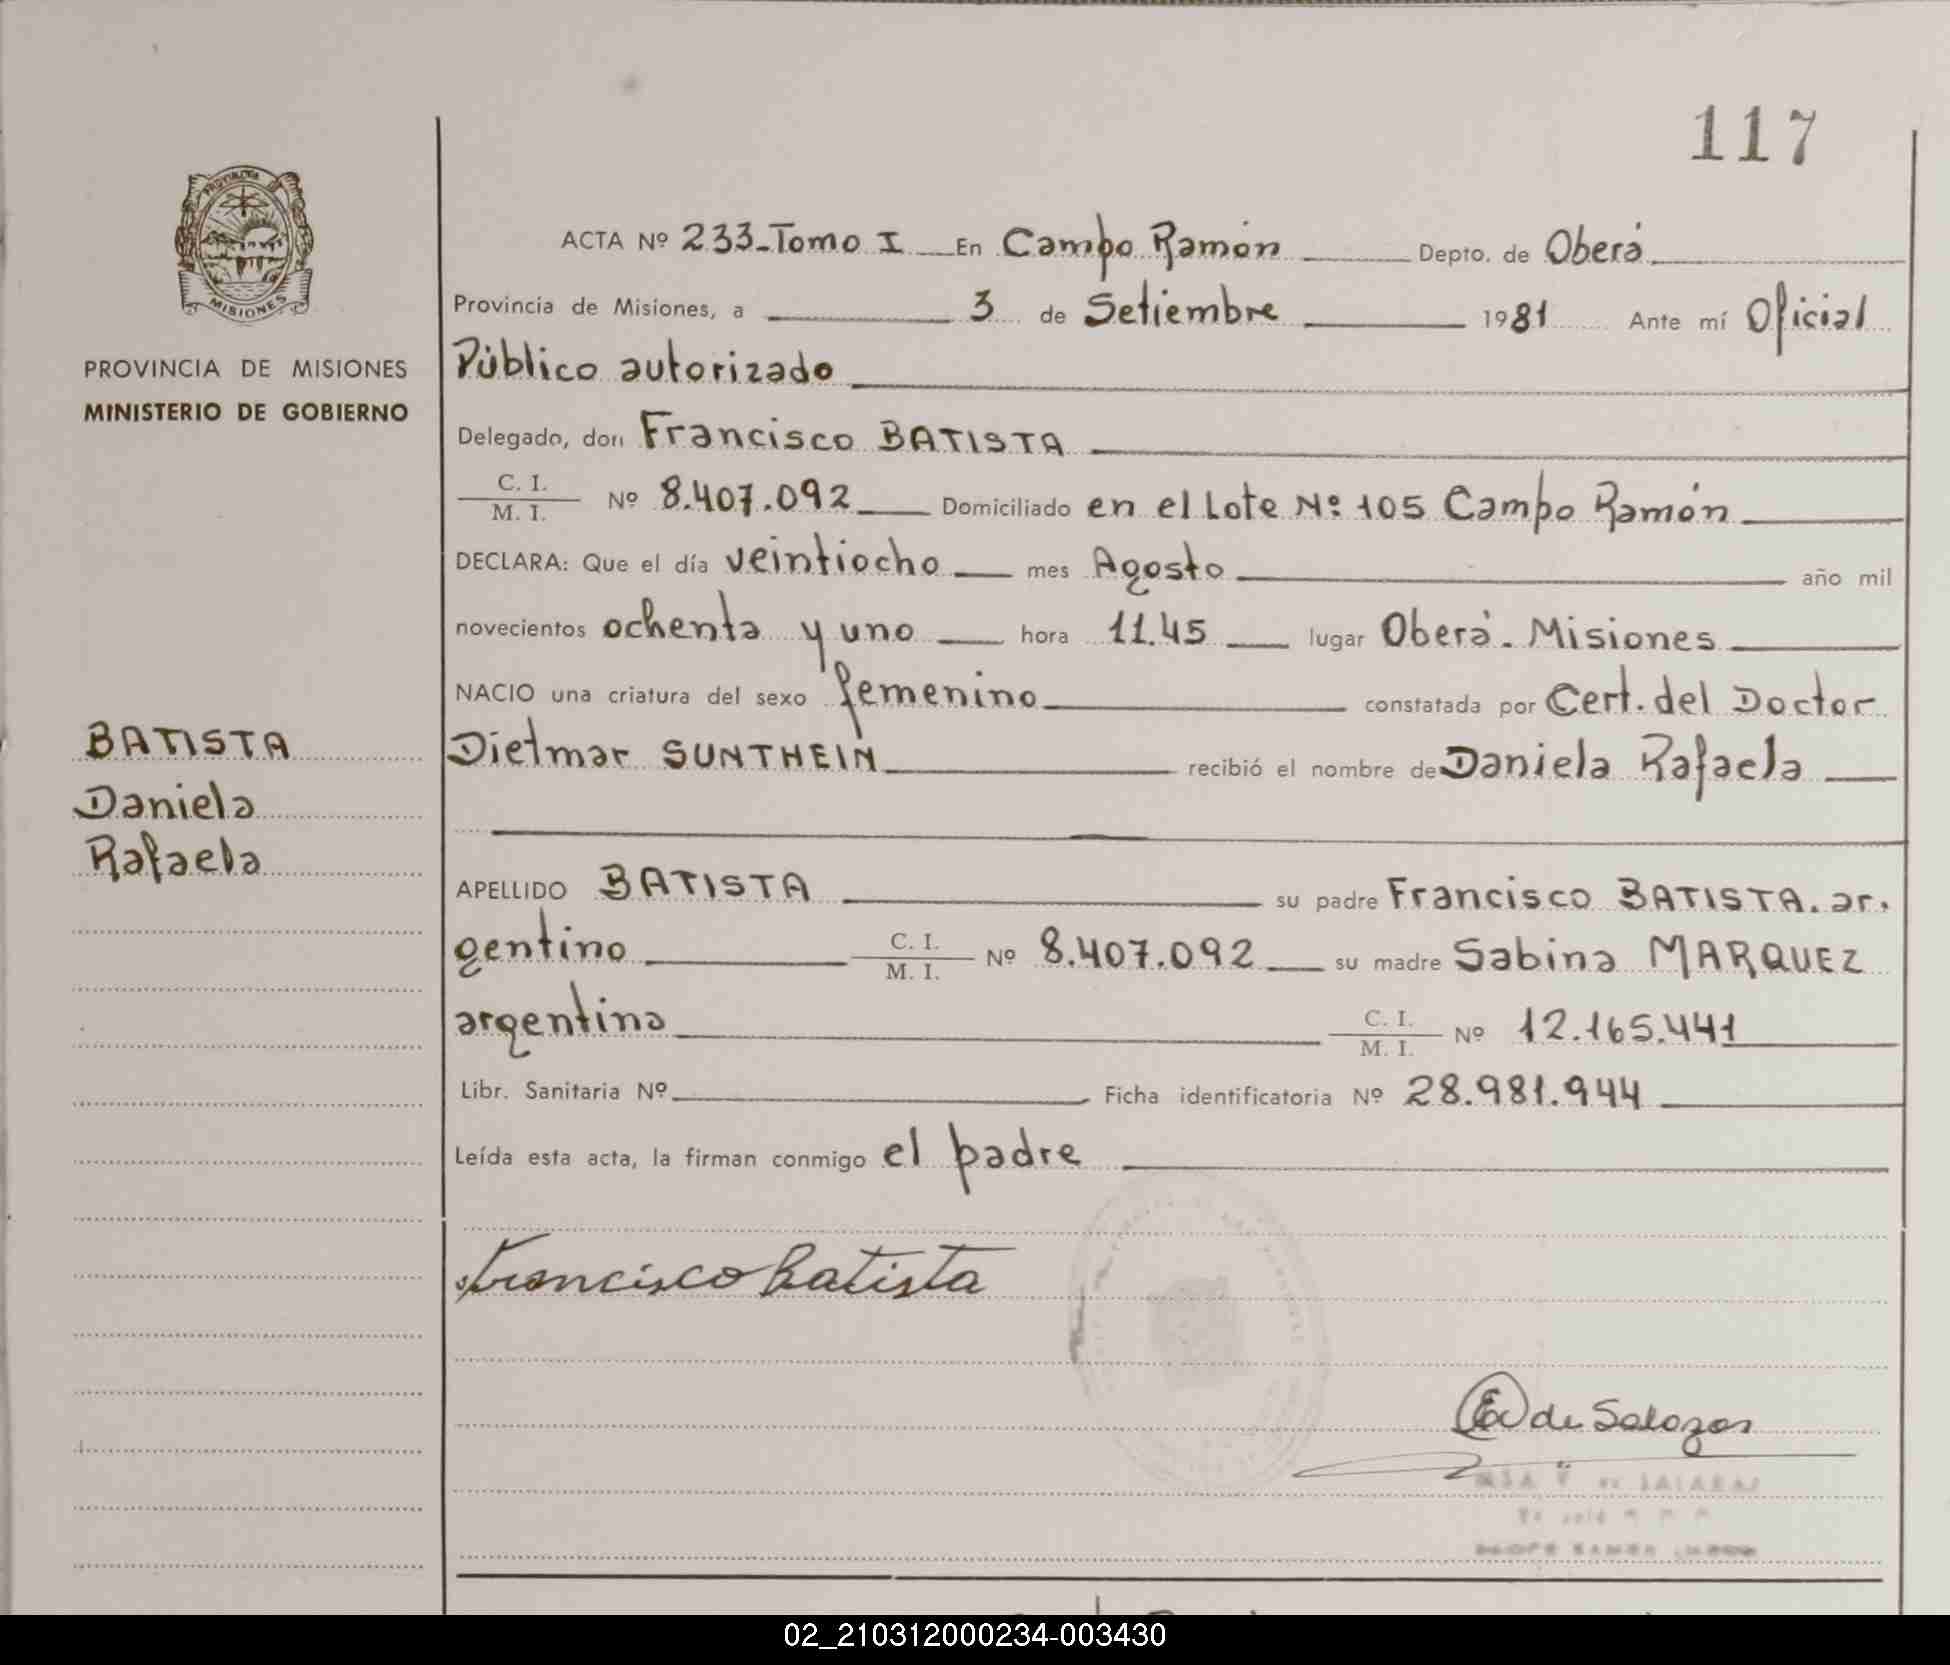 117
PROVINCIA
MISIONES
PROVINCIA DE MISIONES
MINISTERIO DE GOBIERNO
BATISTA
Daniela
Rafaela
ACTA Nº 233-Tomo I En Campo Ramón Depto. de Oberá
Provincia de Misiones, a 3 de Setiembre 1981 Ante mí Oficial
Público autorizado
Delegado, don Francisco BATISTA
C. I.
M. I. Nº 8.407.092 Domiciliado en el Lote Nº 105 Campo Ramón
DECLARA: Que el día veintiocho mes Agosto año mil
novecientos ochenta y uno hora 11.45 lugar Oberá. Misiones
NACIO una criatura del sexo femenino constatada por Cert. del Doctor
Dietmar SUNTHEIN recibió el nombre de Daniela Rafaela
APELLIDO BATISTA su padre Francisco BATISTA. ar.
gentino C. I. M. I. Nº 8.407.092 su madre Sabina MARQUEZ
argentina C. I. M. I. Nº 12.165.441
Libr. Sanitaria Nº Ficha identificatoria Nº 28.981.944
Leída esta acta, la firman conmigo el padre
Francisco Batista
de Salazar
02_210312000234-003430